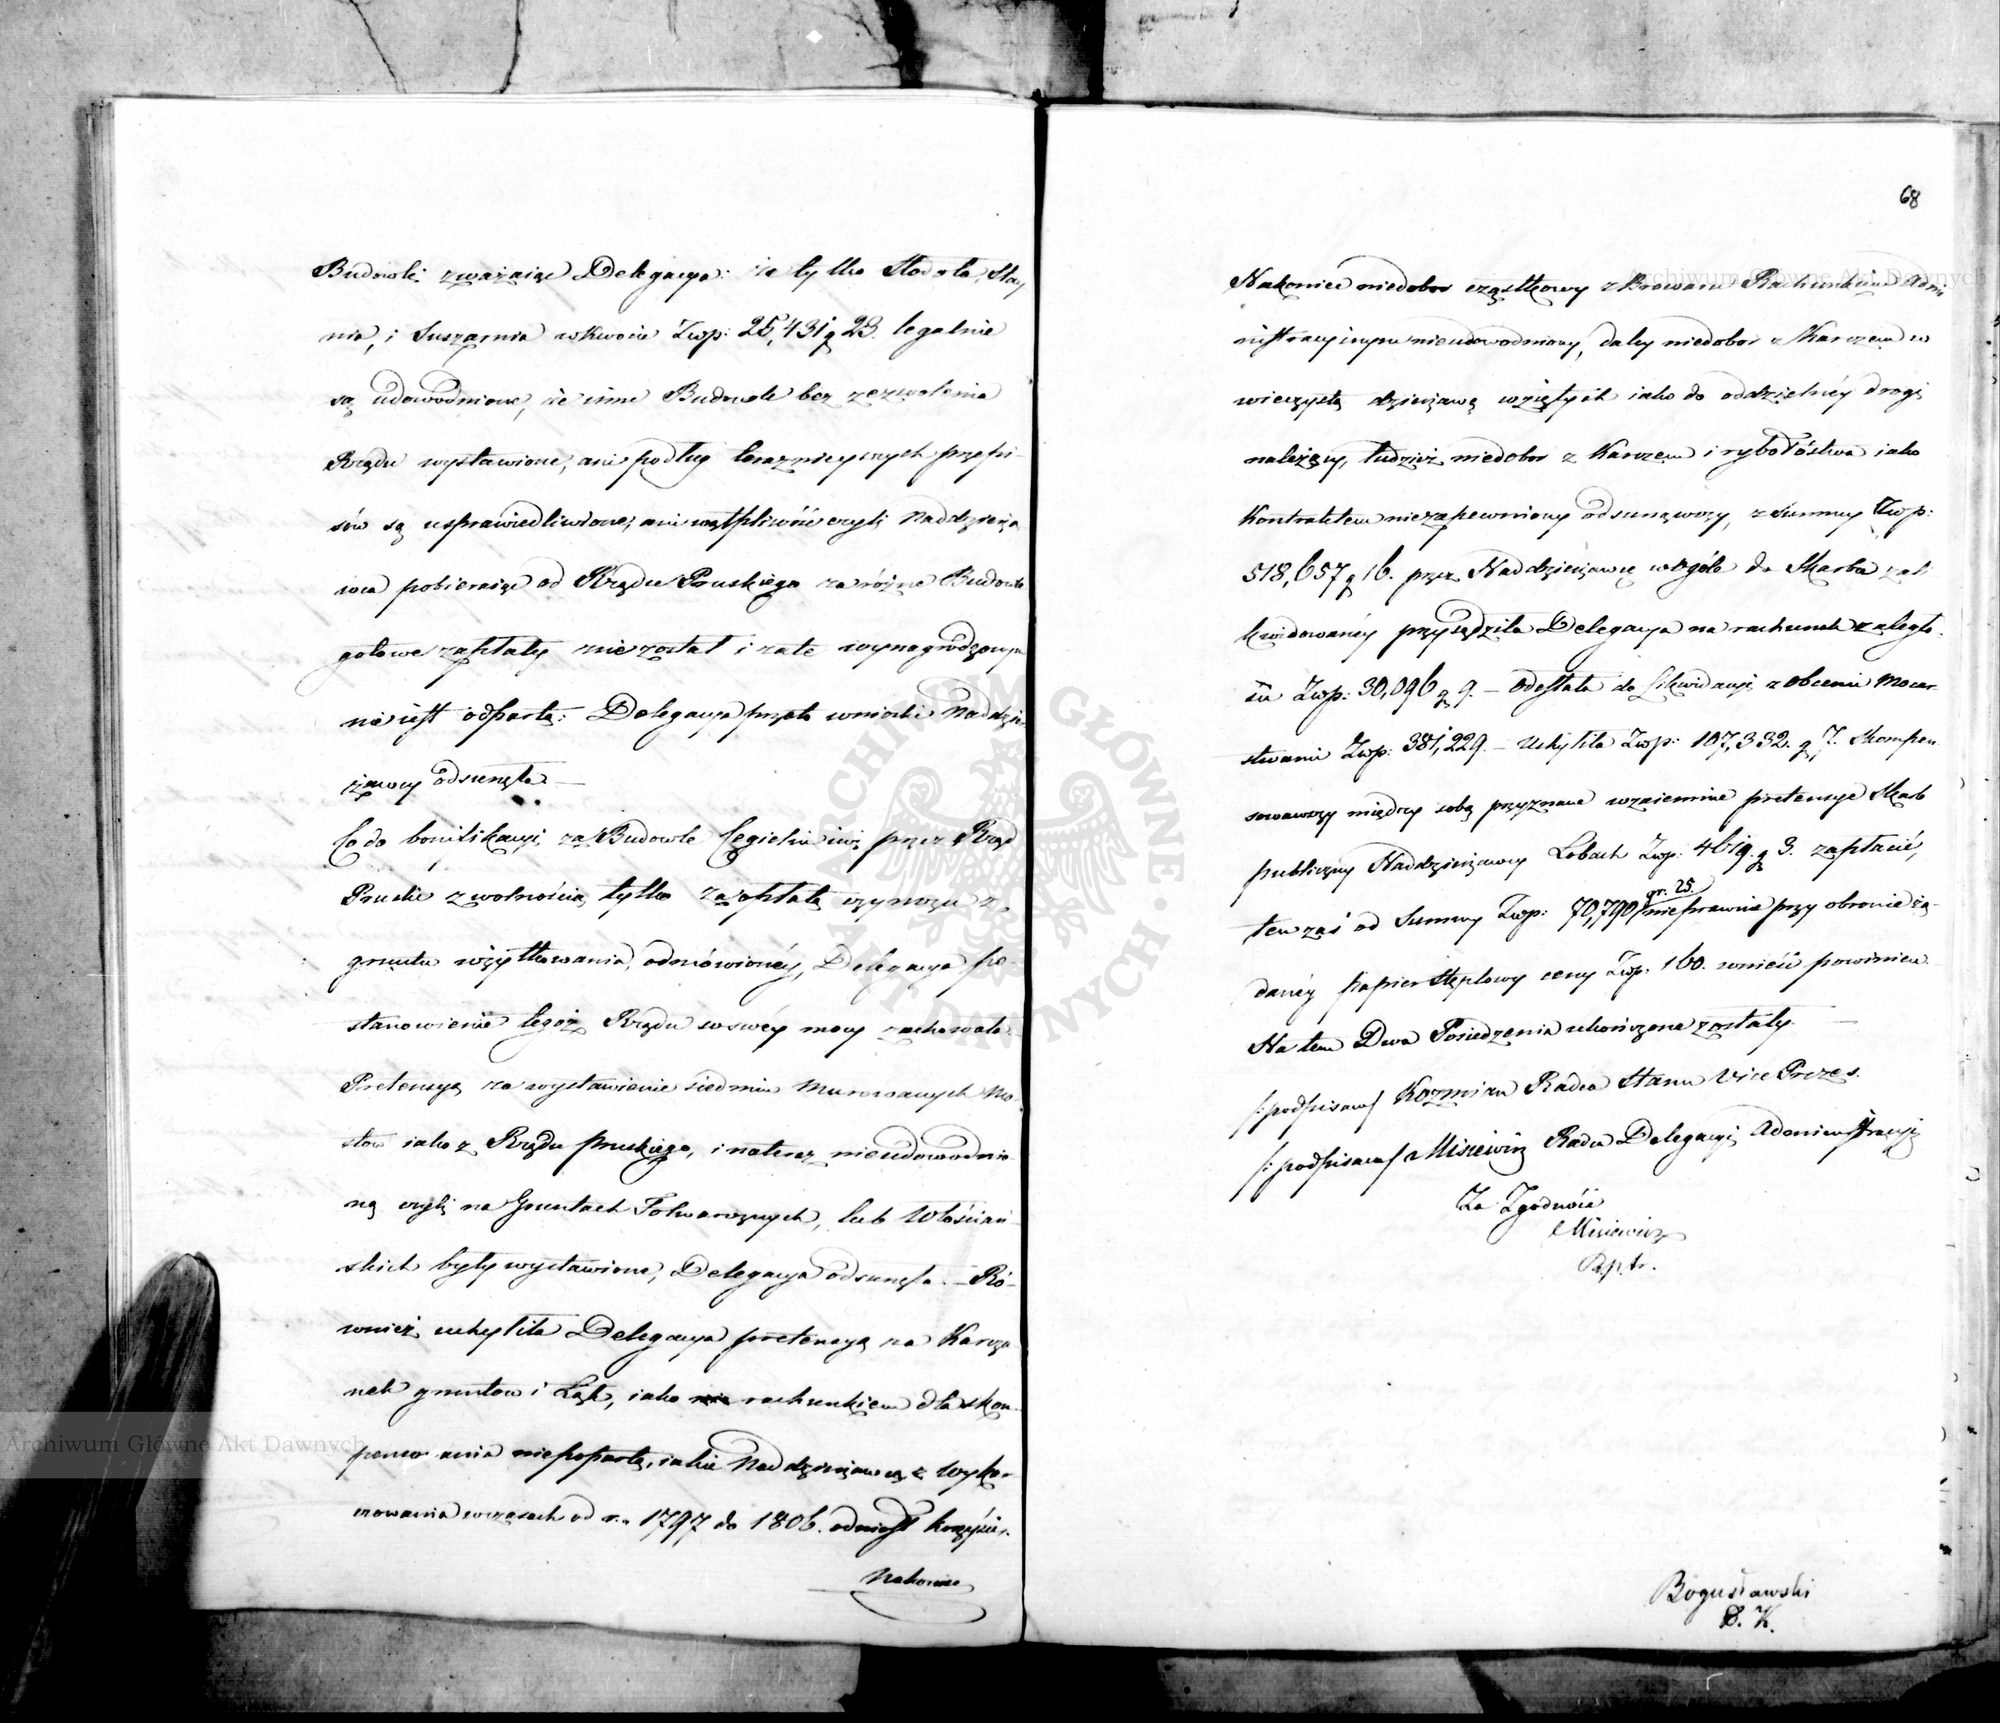 Budowli zważaiąc Delegacya: że tylko Stodoła, Stay
nia, i Suszarnia w kwocie Złwp: 25,431 g 23. legalnie
są udowodnione, że inne Budowle bez zezwolenia
Rządu wystawione, ani podług teraznieyszych przepi-
sów są usprawiedliwione, ani wątpliwość czyli Naddzierża
wca pobieraiąc od Rządu Pruskiego za różne Budowle
gotowe zapłaty nie został i za te wynagrodzonym
nie iest odparta: Delegacya przeto wnioski Naddzier
żawcy odsunęła. —
Co do bonifikacyi za Budowle Cegielni iuż przez Rząd
Pruski z wolnością tylko za opłatą czynszu z
gruntu użytkowania, odmówionéy, Delegacya po-
stanowienie tegoż Rządu w swéy mocy zachowała.
Pretensyą za wystawienie siedmiu Murowanych Mo-
stów iako z Rządu pruskiego, i na teraz nieudowodnio-
ną czyli na Gruntach Folwarcznych, lub Włościań-
skich były wystawione, Delegacya odsunęła. — Ró-
wnież uchyliła Delegacya pretensyą za Karczu
nek gruntów i Łąk, iako rachunkiem dla skom-
penso wania niepopartą, iakie Naddzierżawca z wykar-
czowania w czasach od r. 1797 do 1806. odniósł korzyści.
Nakoniec
68
Nakoniec niedobor cząstkowy z Browaru Rachunkiem Admi
nistracyinym nieudowodniony, daley niedobor z Karczem w
wieczystą dzierżawę wziętych iako do oddzielnéy drogi
należący, tudzież niedobor z Karczem i rybołóstwa iako
Kontraktem niezapewniony odsunąwszy, z Summy Złwp:
518,657 g 16. przez Naddzierżawcę w ogóle do Skarbu zali
kwidowanéy przysądziła Delegacya na rachunek zaległo-
ści Złwp: 30,096 g 9. — Odesłała do Likwidacyi z obcemi Mocar-
stwami Złwp: 381,229. — Uchyliła Złwp: 107,332. g 7. Skompen
sowawszy między sobą przyznane wzaiemne pretensye Skarb
publiczny Naddzierżawcy Lobach Złwp: 4619. g 3. zapłacić,
gr. 25.
ten zaś od Summy Złwp: 70,790 nieprawnie przy obronie żą-
danéy papier stęplowy ceny Złwp. 160. wnieść powinien.
Na tem Dwa Posiedzenia ukończone zostały. —
/:podpisano/ Kozmian Radca Stanu Vice Prezes.
/:podpisano/ Misiewicz Radca Delegacyi Administracyi
Za Zgodność
Misiewicz
Bogusławski
S. K.
Archiwum Główne Akt Dawnych
Archiwum Główne Akt Dawnych
ARCHIWUM GŁÓWNE AKT DAWNYCH